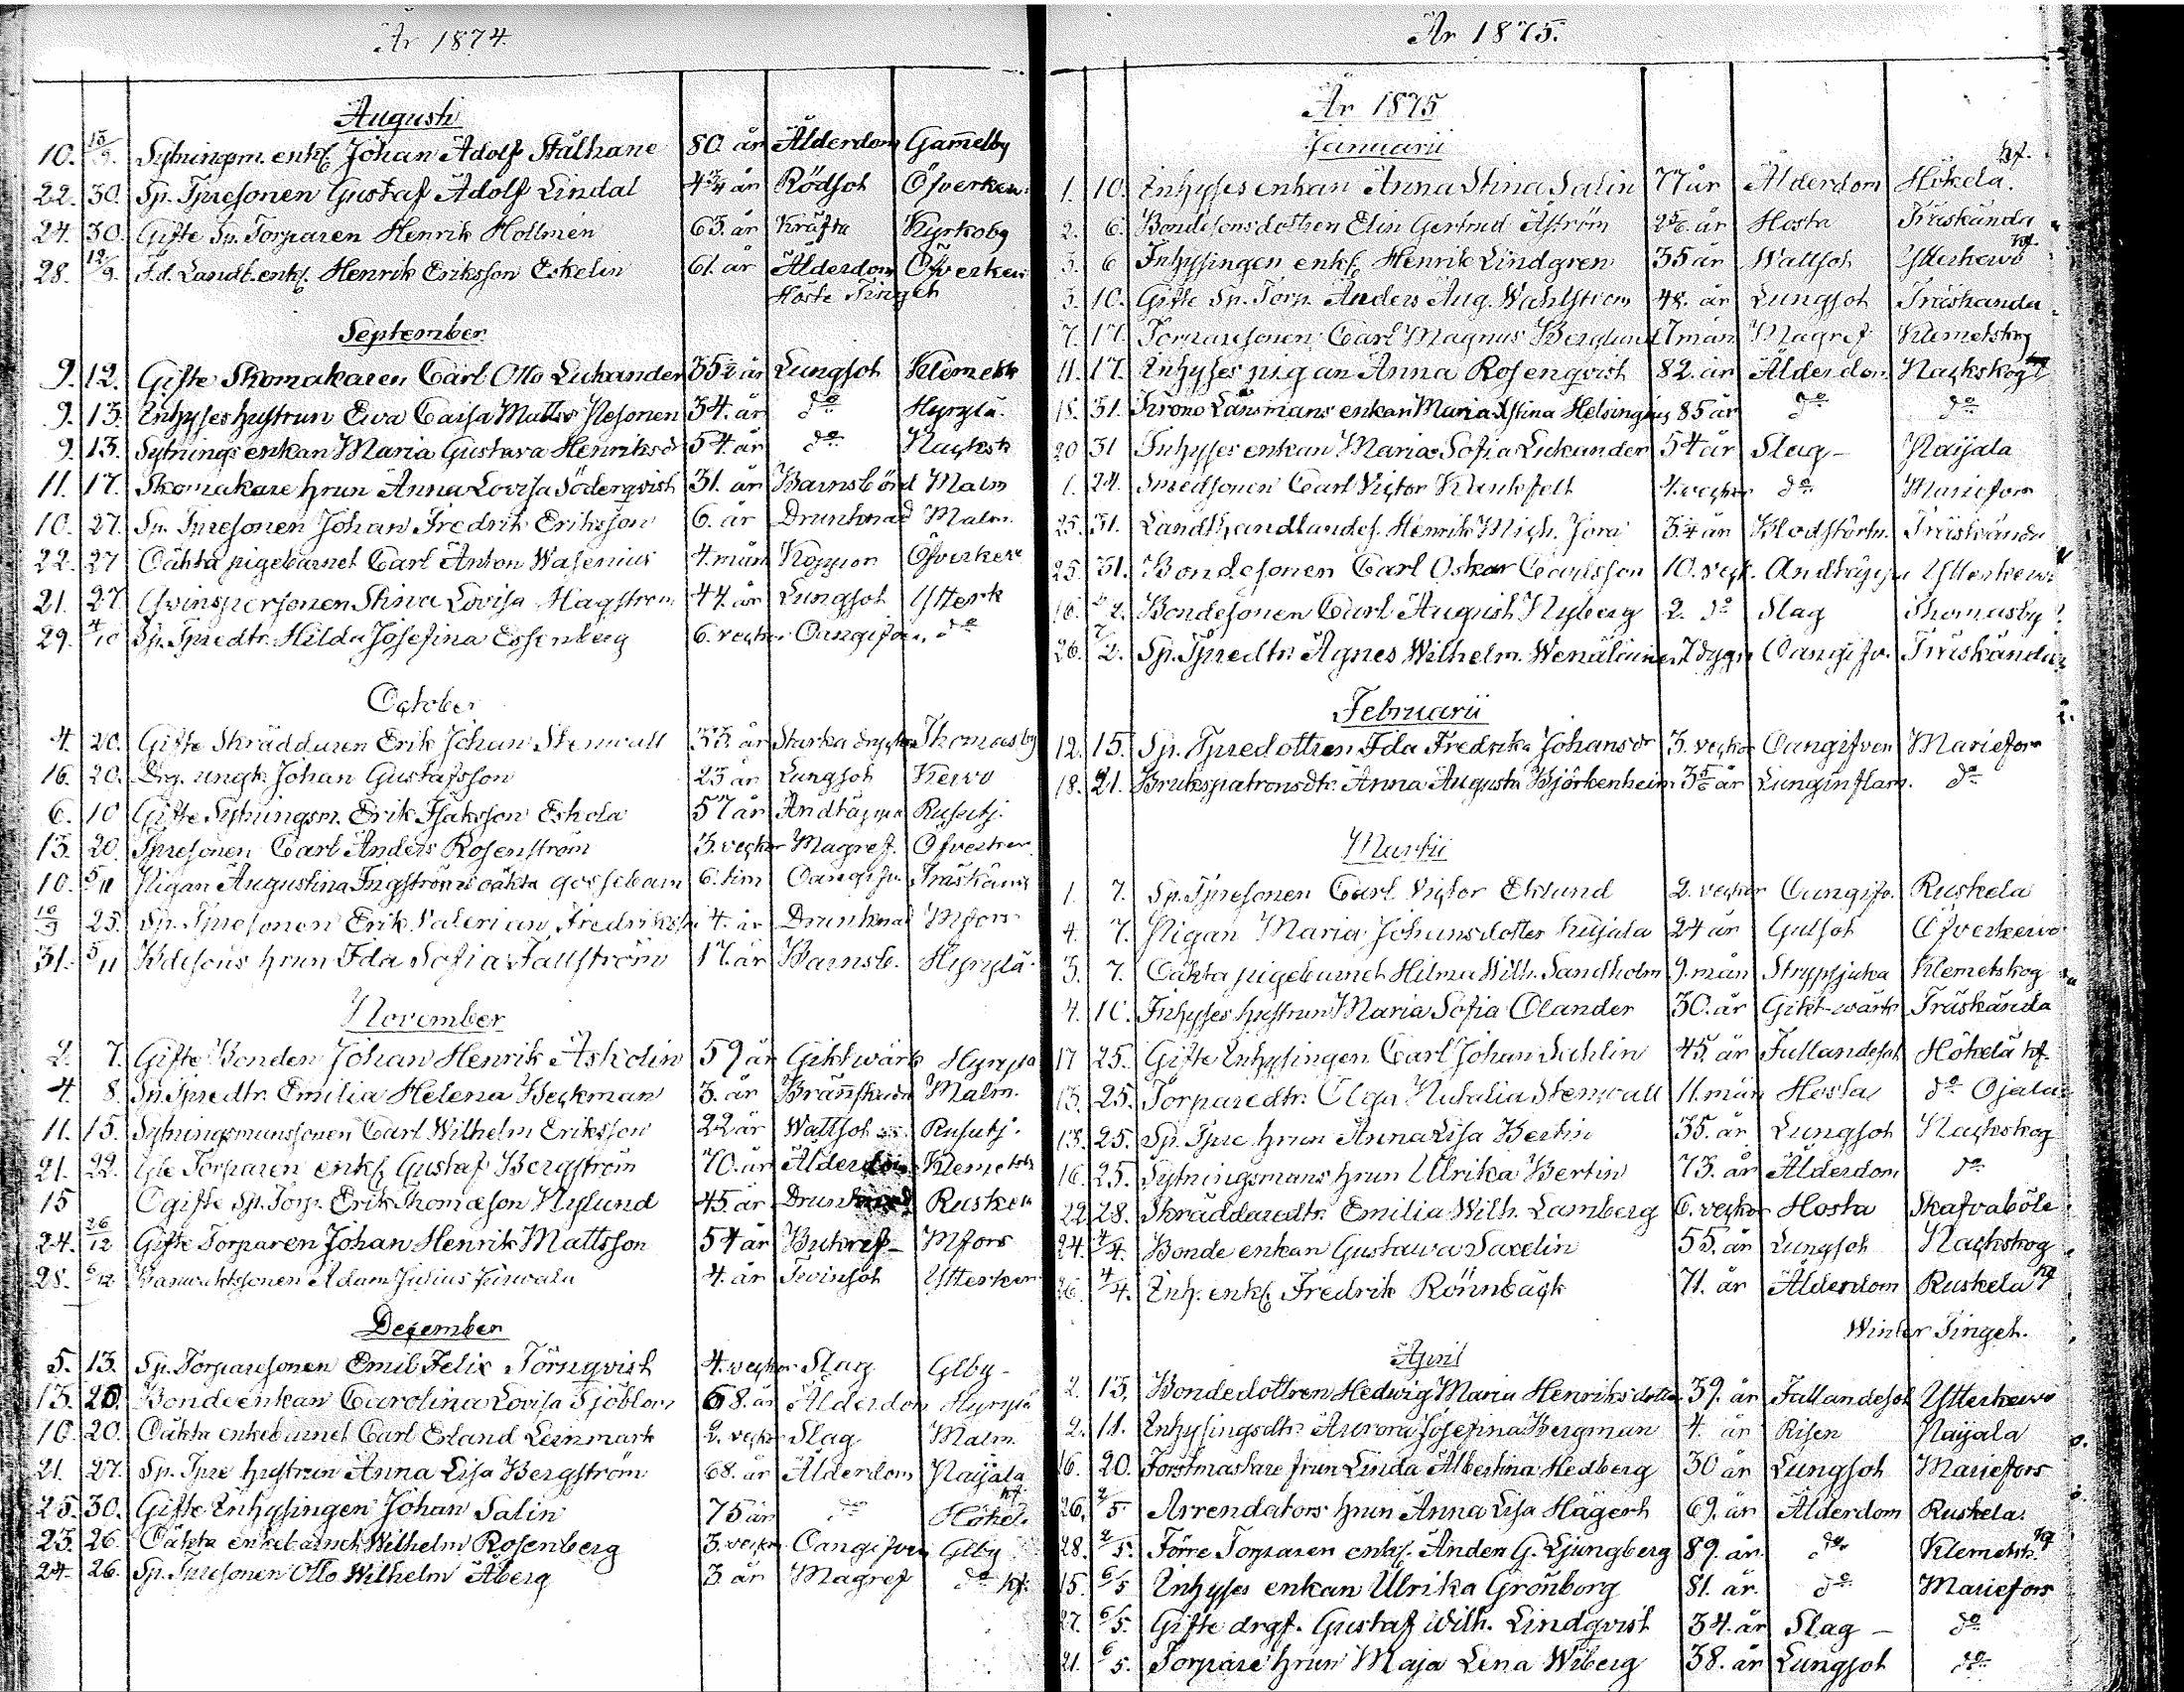 År 1874.
Augusti
10. 13/9. Sytningsm. enkl. Johan Adolf Stålhane 80. år Ålderdom Gamelby
22. 30. Sp. Tpresonen Gustaf Adolf Lindal 4 3/4 år Rödsot Öfverkerv.
24. 30. Gifte Sp. Torparen Henrik Hollmén 63. år Kräfta Kyrkoby
28. 12/9. F.d. Landb. enkl. Henrik Eriksson Eskelin 61. år Ålderdom Öfverkerv
Höste Tinget
September
9. 12. Gifte Skomakaren Carl Otto Lukander 35 1/2 år Lungsot Klemetsk
9. 13. Inhyses hustrun Eva Caisa Matts 34. år do Hyrylä.
9. 13. Sytnings enkan Maria Gustava Henriksdr 54. år do Nacksk
11. 17. Skomakare hrun Anna Lovisa Söderqvist 31. år Barnsbörd Malm
10. 27. Sp. Tpresonen Johan Fredrik Eriksson 6. år Drunknad Malm.
22. 27 Oäkta pigebarnet Carl Anton Wasenius 4. mån Koppor Öfverkerv
21. 27 Qvinspersonen Stina Lovisa Hagström 44. år Lungsot Ytterk
29. 4/10 Sp. Tpredtr. Hilda Josefina Essenberg 6. veckor Oangifven. do
October
4. 20. Gifte Skräddaren Erik Johan Stenwall 33. år Starka drycker Thomasby
16. 20. Drg. ungk. Johan Gustafsson 23 år Lungsot Kerwo
6. 10 Gifte Sytningsm. Erik Isaksson Eskola 57 år Andtäppa Rusutj.
13. 20 Tpresonen Carl Anders Rosenström 3. veckor Magref. Öfverkerv
10. 5/11 Pigan Augustina Engströms oäkta gossebarn 6. tim Oangifv. Träskända
10/9 25. Sp. Tpresonen Erik Valerian Fredrikss. 4. år Drunknad Mfors
31. 5/11 Bdesons hrun Ida Sofia Fallström 17. år Barnsb. Hyrylä.
November
2. 7. Gifte Bonden Johan Henrik Askolin 59 år Giktwärk Hyrylä
4 8. Sp. Tpredtr. Emilia Helena Beckman 3. år Brännskada Malm.
11. 15. Sytningsmanssonen Carl Wilhelm Eriksson 22 år Wattsot Rusutj.
21. 22. Gle Torparen enkl. Gustaf Bergström 70. år Ålderdom Klemetsk
15 Ogifte Sp. Torp. Erik Thomæson Nylund 45. år Drunknad Ruskela
24. 26/12 Gifte Torparen Johan Henrik Mattsson 54 år Bukref Mfors
28. 6/12 Adam Julius 4. år Tvinsot Ytterkerv
December
5. 13. Sp. Torparesonen Emil Felix Törnqvist 4. veckor Slag Glby
13. 20. Bondeenkan Carolina Lovisa Sjöblom 68. år Ålderdom Hyrylä
10. 20. Oäkta enkebarnet Carl Erland Leinmark 2. veckor Slag Malm.
21. 27. Sp. Tpre hustrun Anna Lisa Bergström 68. år Ålderdom Naijala
25. 30. Gifte Inhysingen Johan Salin 75 år do Hökel. kf.
23. 26. Oäkta enkebarnet Wilhelm Rosenberg 3. veckor Oangifven Glby
24. 26. Sp. Tpresonen Otto Wilhelm Åberg 3 år Magref do kf.
År 1875.
År 1875
Januarii
1. 10. Inhyses enkan Anna Stina Salin 77 år Ålderdom Hökela. kf.
2. 6. Bondesonsdottren Elin Gertrud Åström 2 5/6 år Hosta Träskända
3. 6 Inhysingen enkl. Henrik Lindgren 35 år Wattsot Ytterkerwo kf.
3. 10. Gifte Sp. Torp. Anders Aug. Wahlström 48. år Lungsot Träskända
7. 17. Torparesonen Carl Magnus Berglund 7 mån Magref Klemetskog
11. 17. Inhyses pigan Anna Rosenqvist 82. år Ålderdom Nackskog kf
15. 31. Krono Länsmans enkan Maria Stina Helsingius 85 år do do
20 31 Inhyses enkan Maria Sofia Lukander 54 år Slag Naijala
1. 24. Smedsonen Carl Victor Klinkfelt 4. veckor do Mariefors
25. 31. Landthandlandes. Henrik Mich. Jora 34 år Blodstörtn. Träskända
25. 31. Bondesonen Carl Oskar Carlsson 10. veck. Andtäppa Ytterkerwo
16. 2/2. Bondesonen Carl August Nyberg 2. do Slag Thomasby
26. 7/2. Sp. Tpredtr. Agnes Wilhelm. Wenäläinen 7 dygn Oangifv. Träskända
Februarii
12. 15. Sp. Tpredottren Ida Fredrika Johansdr 3. veckor Oangifven Mariefors
18. 21. Brukspatronsdtr. Anna Augusta Björkenheim 3 5/6 år Lunginflam. do
Martii
1. 7. Sp. Tpresonen Carl Victor Eklund 2. veckor Oangifv. Ruskela
4. 7. Pigan Maria Johansdotter Kujala 24 år Gulsot Öfverkervo
3. 7. Oäkta pigebarnet Hilma Wilh. Sandholm 9. mån Strypsjuka Klemetskog
4. 10. Inhyses hustrun Maria Sofia Olander 30. år Gikt-wärk Träskända
17 25. Gifte Inhysingen Carl Johan Sahlin 45. år Fallandesot Hökelä kf.
13. 25. Torparedtr. Olga Natalia Stenwall 11. mån Hosta do Ojala
13. 25. Sp. Tpre hrun Anna Lisa Bertin 35. år Lungsot Nackskog
16. 25. Sytningsmans hrun Ulrika Bertin 73. år Ålderdom do
22 28. Skräddaredtr. Emilia Wilh. Lamberg 6. veckor Hosta Skafvaböle
24. 4/4. Bonde enkan Gustawa Saxelin 55. år Lungsot Nackskog
26. 4/4. Inh. enkl. Fredrik Rönnbäck 71. år Ålderdom Ruskela kf
Winter Tinget.
April
2. 13. Bondedottren Hedwig Maria Henriksdotter 39. år Fallandesot Ytterkerwo
2. 11. Inhysingsdtr. Aurora Josefina Bergman 4. år Risen Naijala
16. 20. Forstmastare frun Linda Albertina Hedberg 30 år Lungsot Mariefors
26. 2/5 Arrendators hrun Anna Lisa Hägert 69. år Ålderdom Ruskela.
28. 2/5. Förre Torparen enkl. Anders G. Ljungberg 89. år. do Klemetsk. kf
15. 6/5 Inhyses enkan Ulrika Grönborg 81. år. do Mariefors
27. 6/5. Gifte drgf. Gustaf Wilh. Lindqvist 34. år Slag do
21. 6/5. Torpare hrun Maja Lena Wiberg 38. år Lungsot do